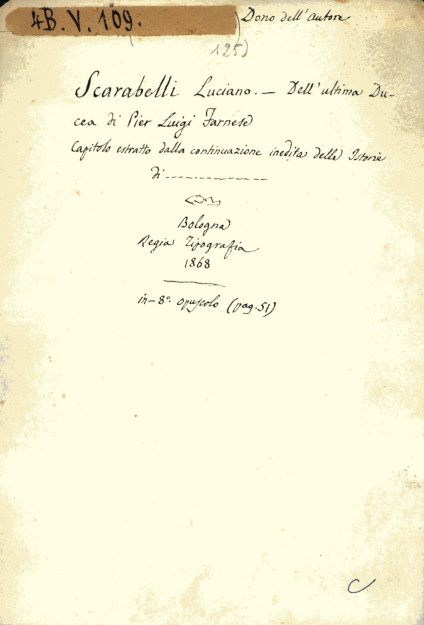 4B. V. 109.
Dono dell'autore
125)
Scarabelli Luciano. — Dell'ultima Du-
cea di Pier Luigi Farnese
Capitolo estratto dalla continuazione inedita delle Istorie
di --------------
Bologna
Regia Tipografia
1868
in-8°. opuscolo (pag. 51)
C